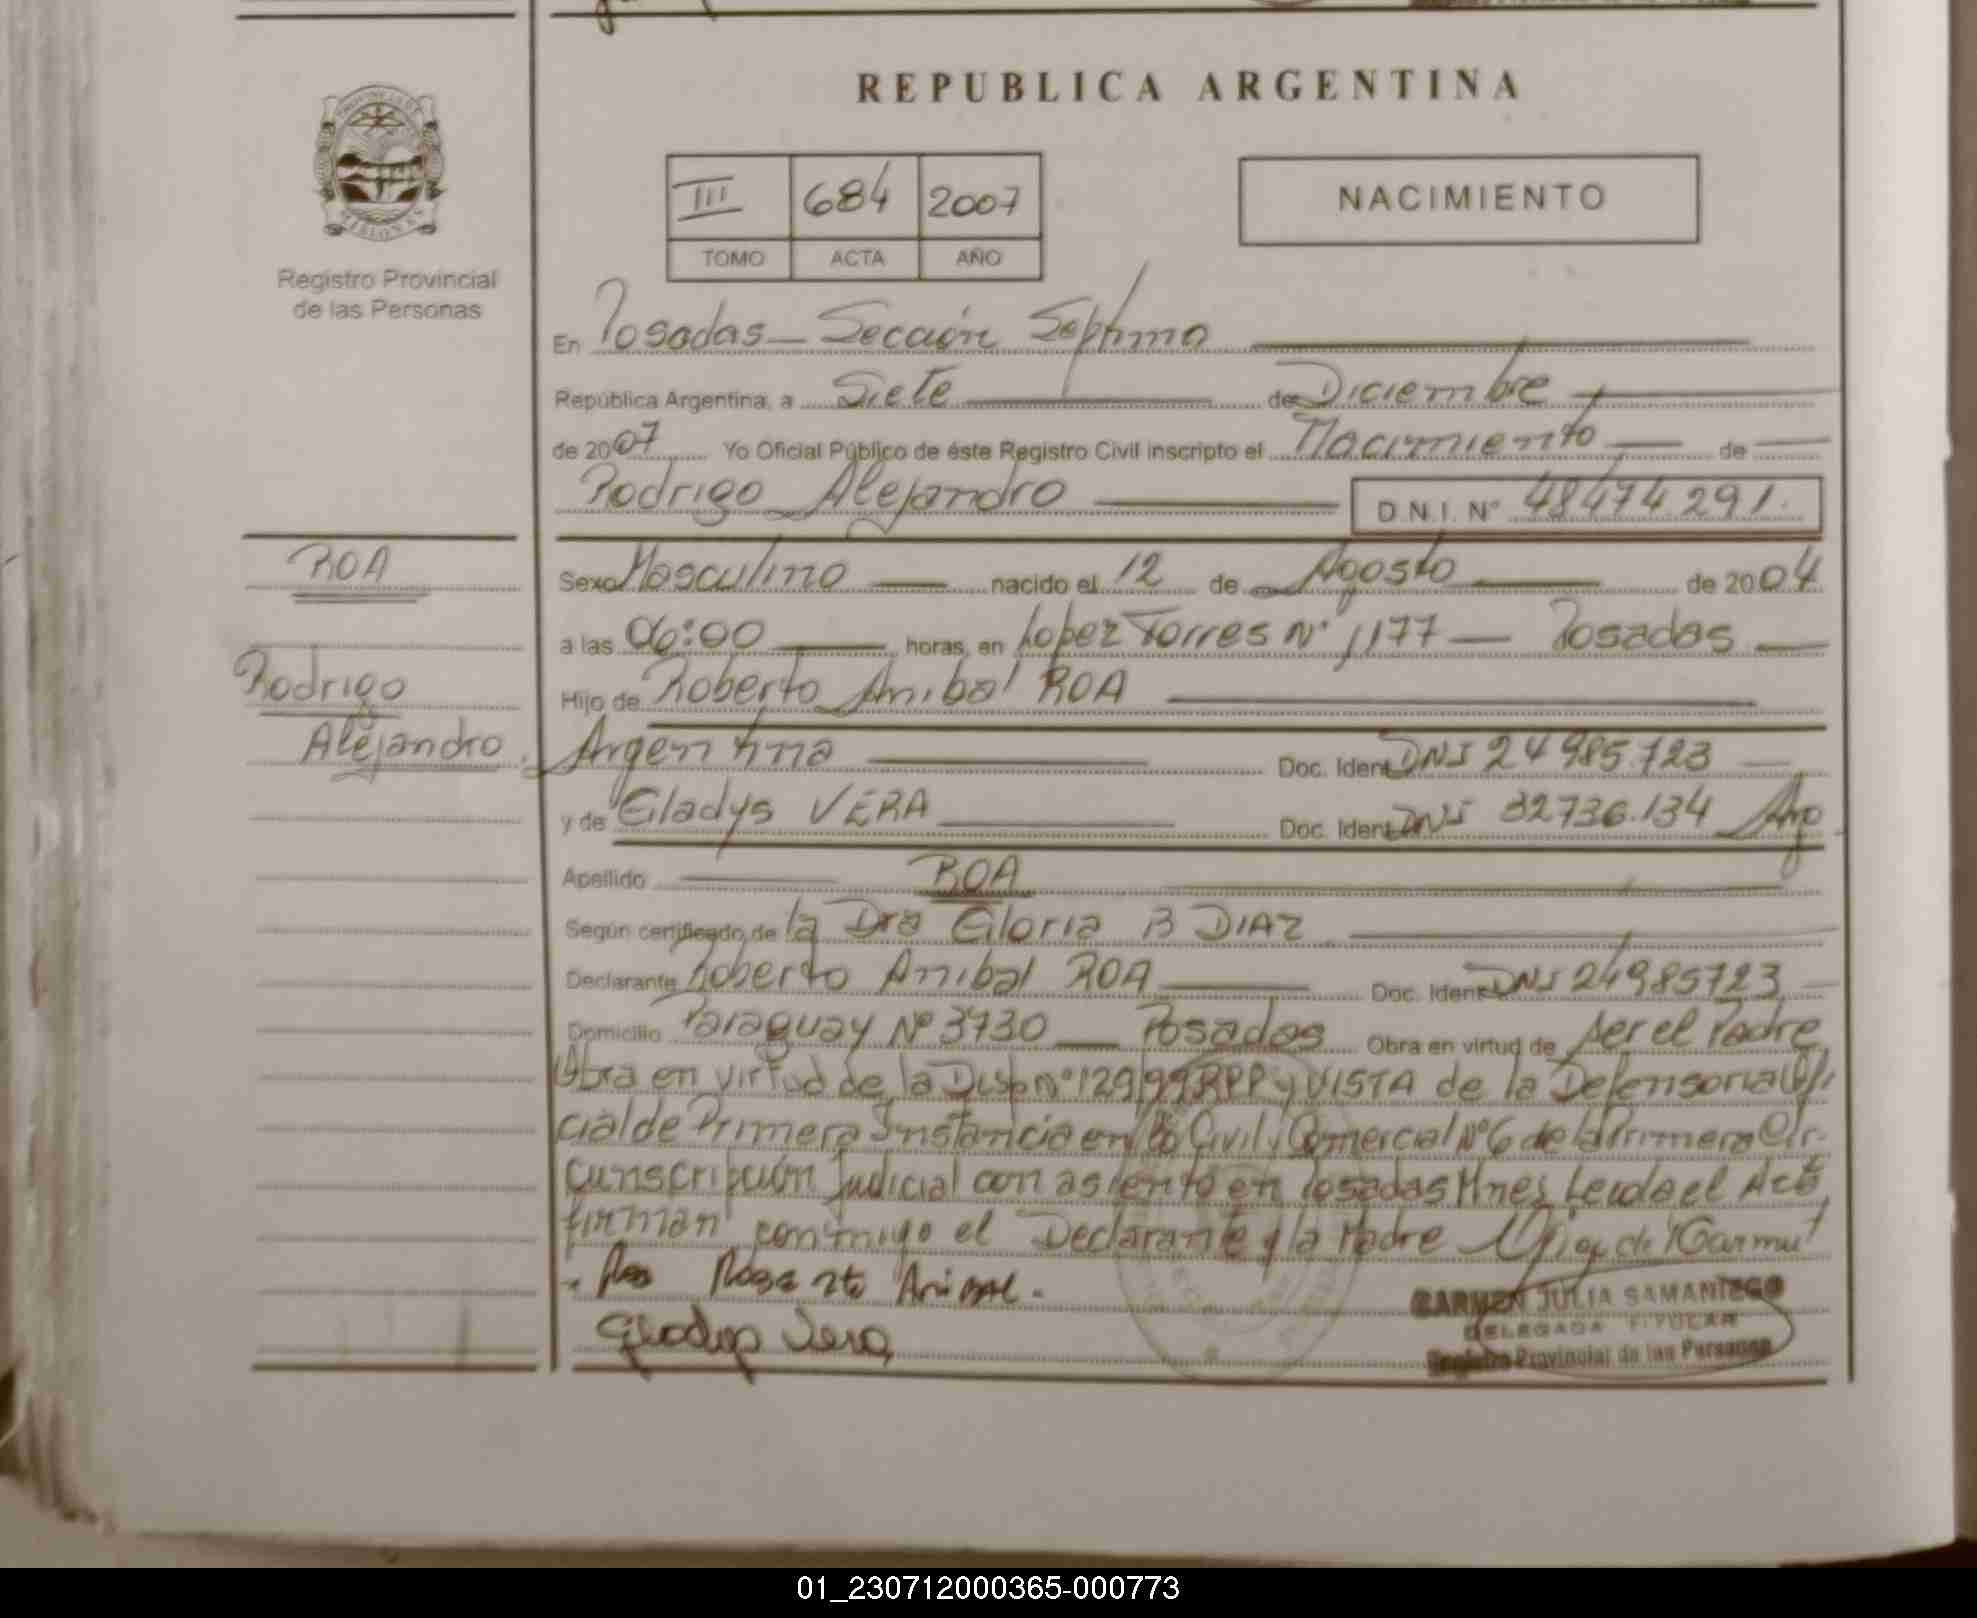 REPUBLICA ARGENTINA
III 684 2007
TOMO ACTA AÑO
NACIMIENTO
Registro Provincial
de las Personas
En Posadas - Sección Séptima
República Argentina, a Siete de Diciembre
de 2007 Yo Oficial Público de éste Registro Civil inscripto el Nacimiento de
Rodrigo Alejandro D.N.I. N° 48474291.
ROA
Rodrigo
Alejandro
Sexo Masculino nacido el 12 de Agosto de 2004
a las 06:00 horas, en Lopez Torres N° 1177 - Posadas
Hijo de Roberto Anibal ROA
Argentina Doc. Ident. DNI 24985.723
y de Gladys VERA Doc. Ident. DNI 32736.134 Arg
Apellido ROA
Según certificado de la Dra Gloria B DIAZ
Declarante Roberto Anibal ROA Doc. Ident. DNI 24985723
Domicilio Paraguay N° 3730 Posadas Obra en virtud de ser el Padre
Obra en virtud de la Disp N° 129/99 RPP y VISTA de la Defensoria Ofi
cial de Primera Instancia en lo Civil y Comercial N° 6 de la Primera Cir
cunscripción Judicial con asiento en Posadas Mnes Leida el Acta
firman conmigo el Declarante y la Madre
Roa Roberto Anibal.
Gladys Vera
CARMEN JULIA SAMANIEGO
DELEGADA TITULAR
Registro Provincial de las Personas
01_230712000365-000773